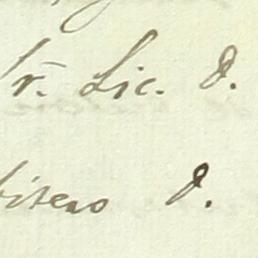 Sr. Lic. D.
bitero D.